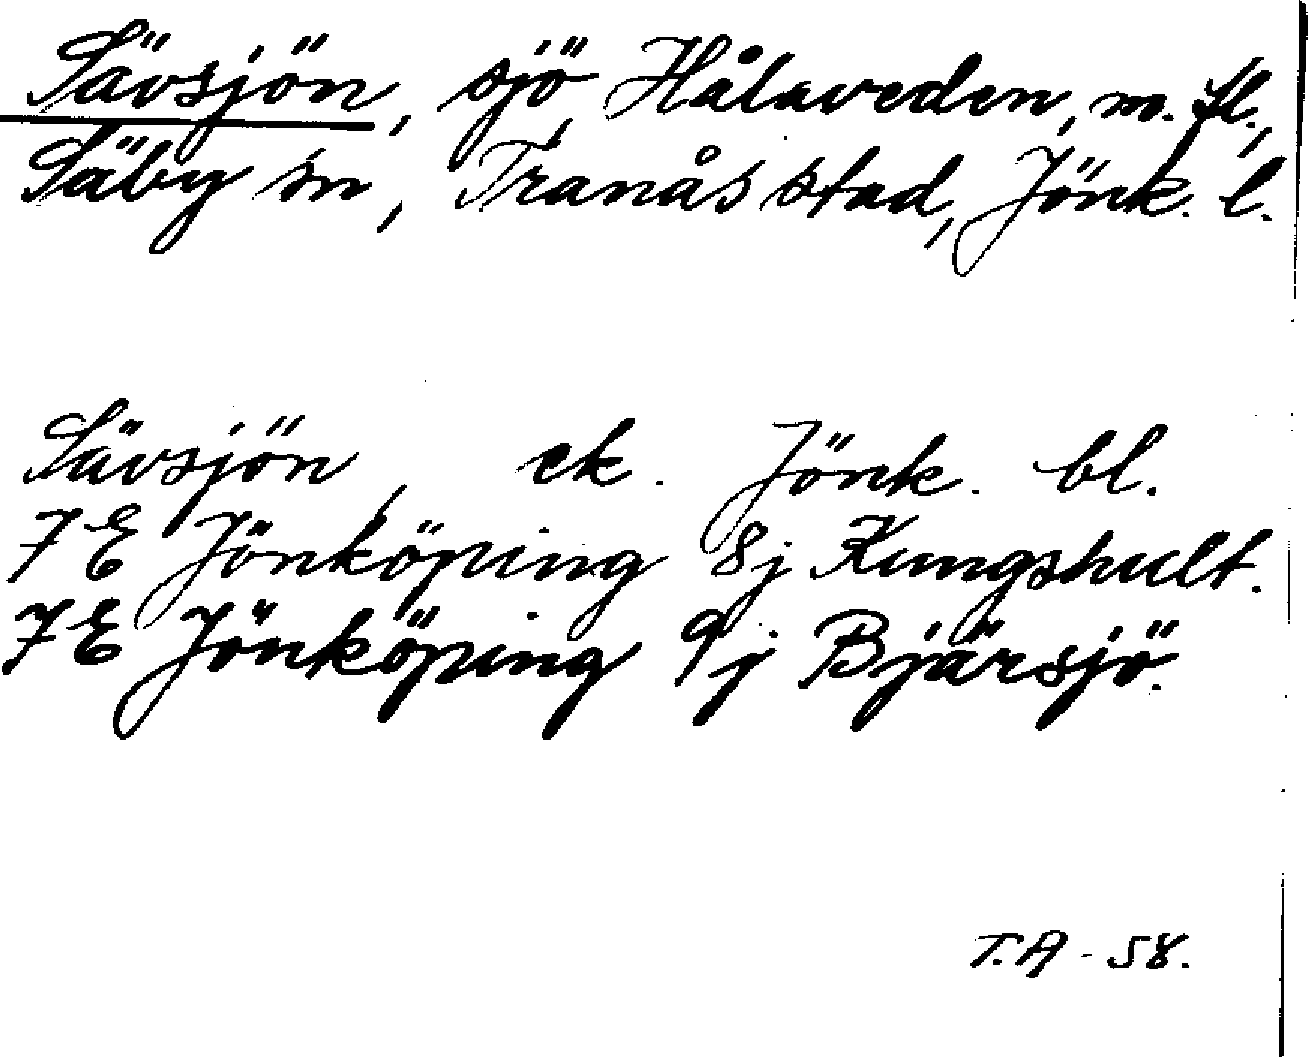 Sävsjön, sjö, Hålaveden, m. fl.,
Säby sn, Tranås stad, Jönk. l.
Sävsjön, ek. Jönk. bl.
7E Jönköping 8j Kungshult.
7E Jönköping 9j Bjärsjö.
T.A - 58.